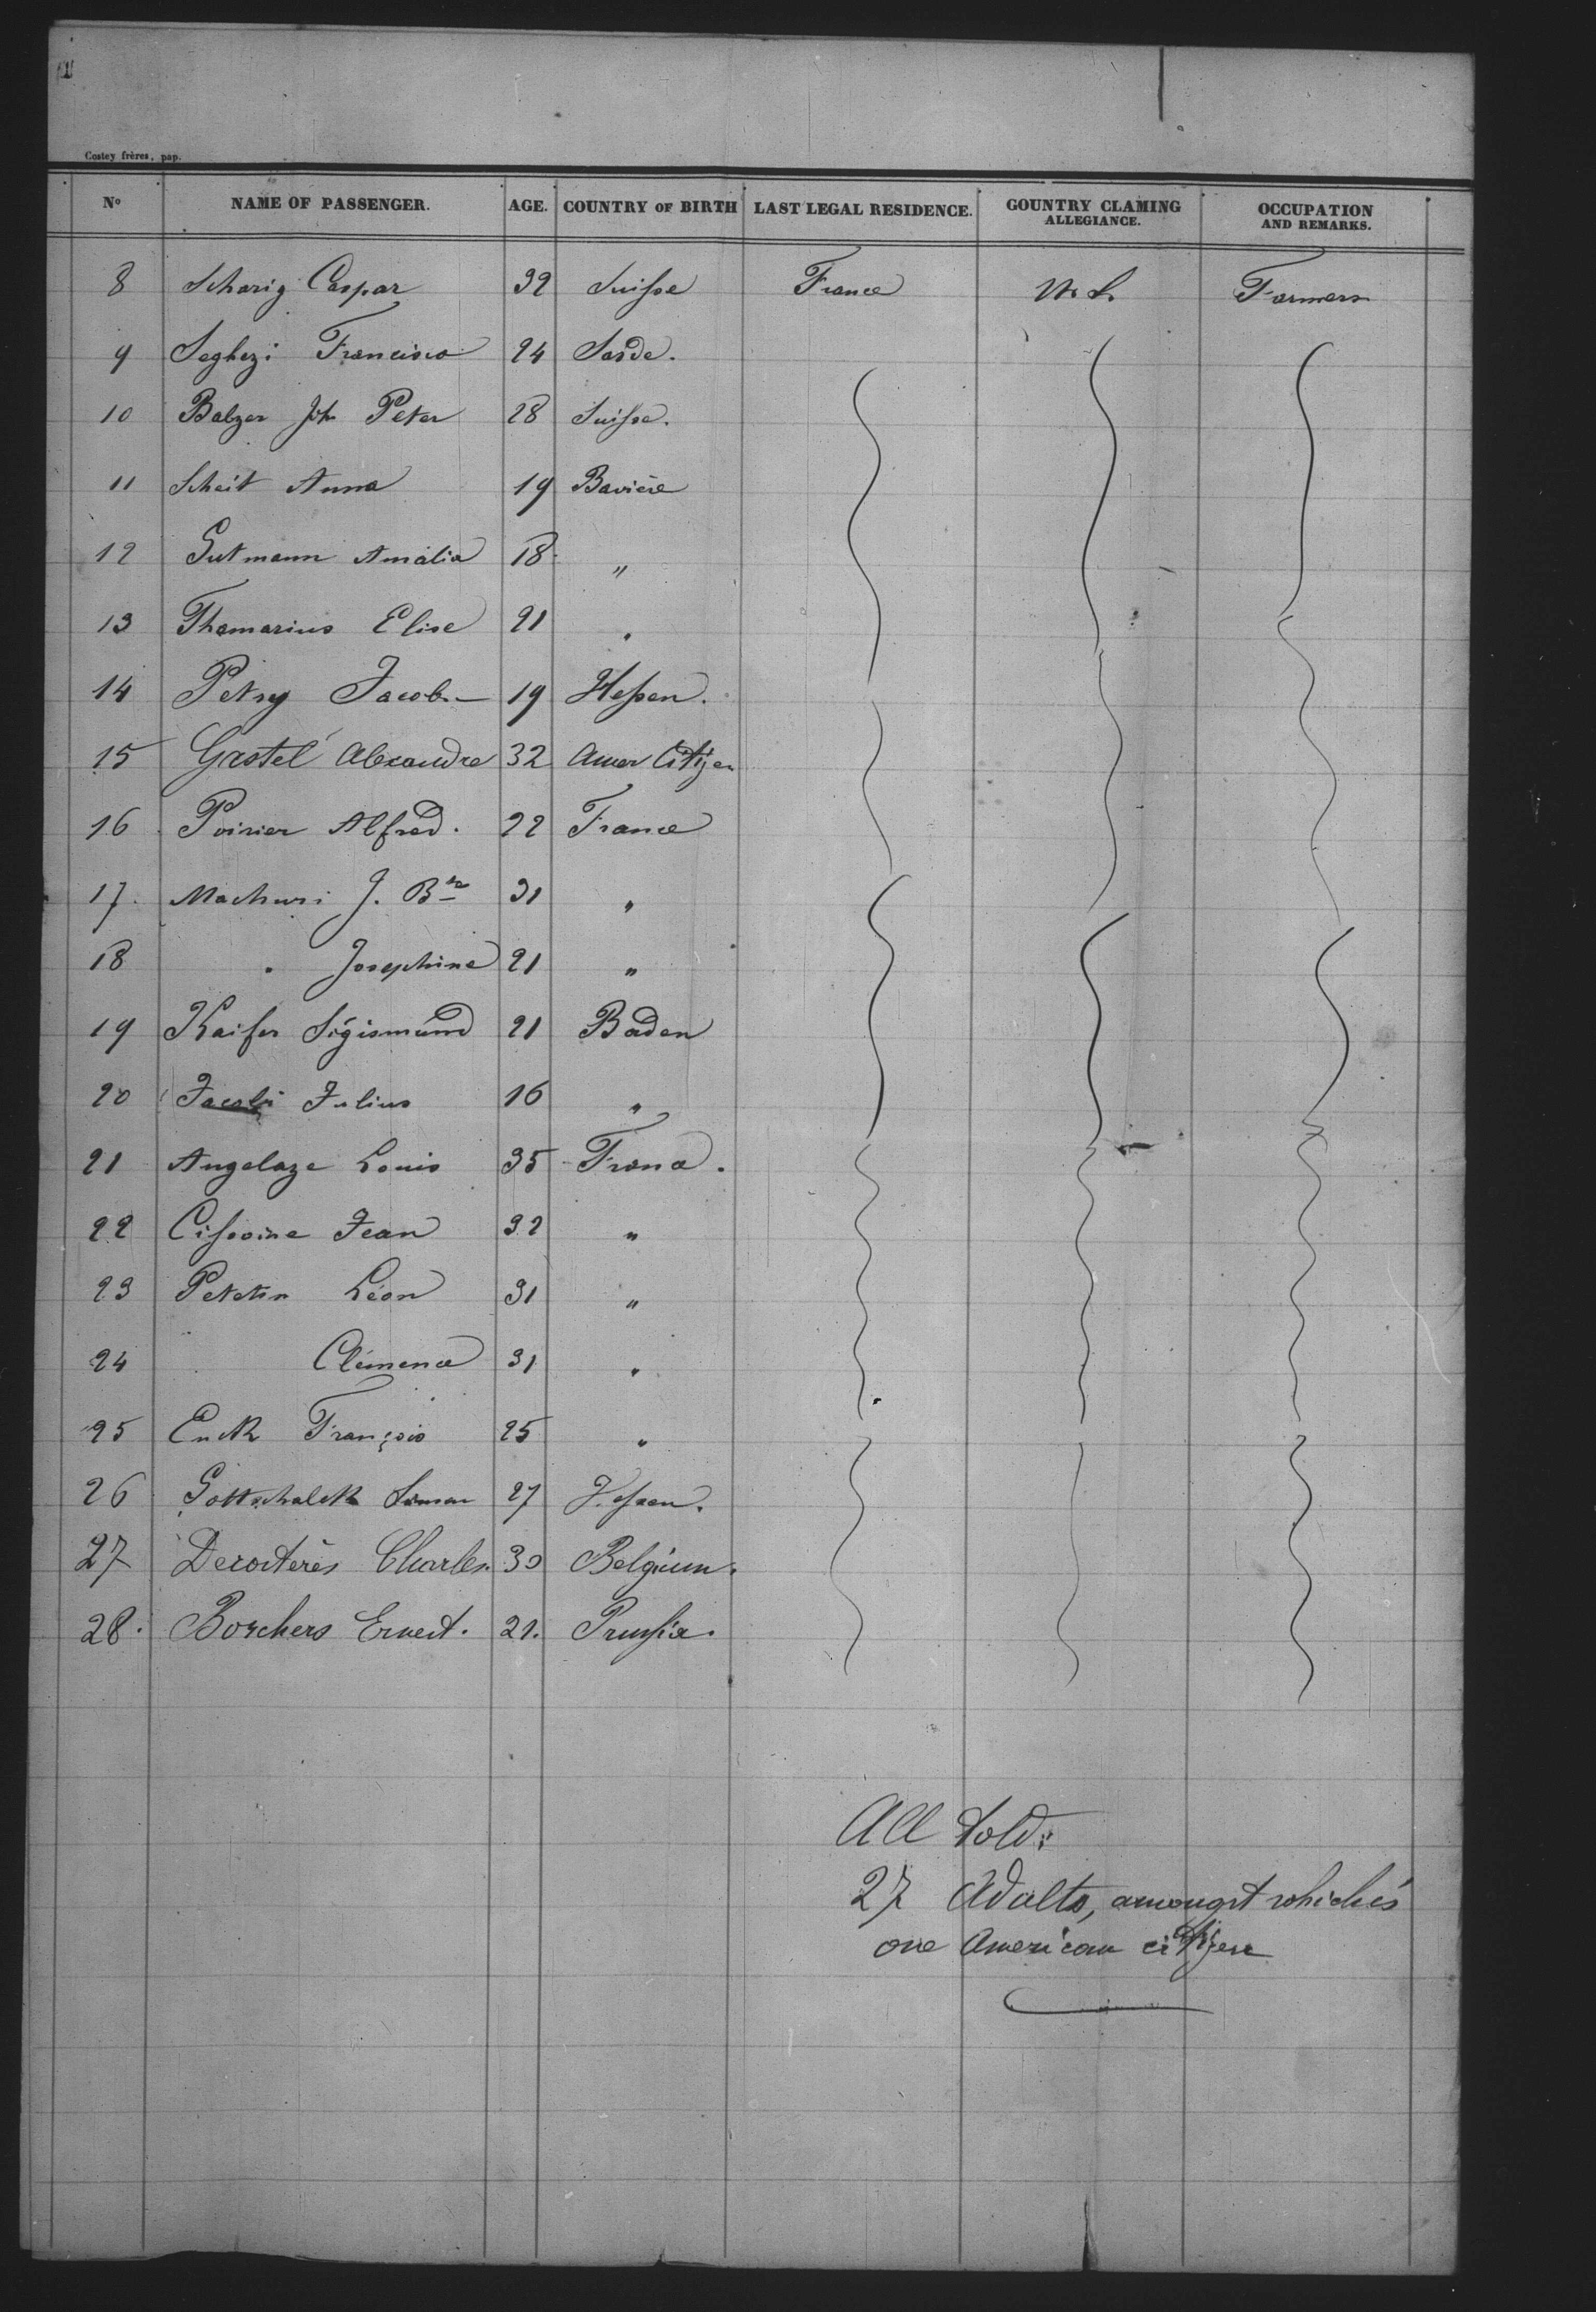 Costey frères, pap.
No NAME OF PASSENGER. AGE. COUNTRY OF BIRTH LAST LEGAL RESIDENCE. GOUNTRY CLAMING ALLEGIANCE. OCCUPATION AND REMARKS.
8 Scharig Caspar 32 Suisse France U. S. Farmers
9 Seghezi Francisco 24 Sarde.
10 Balzer Joh Peter 28 Suisse.
11 Scheit Anna 19 Bavière
12 Gutmann Amalia 18 "
13 Thamarius Elise 21 "
14 Petry Jacob. — 19 Hessen.
15 Gastel Alexandre 32 Amer Citizen
16 Poirier Alfred. 22 France
17. Machuri J. Bte 31 "
18 " Josephine 21 "
19 Kaiser Sigismund 21 Baden
20 Jacobi Julius 16 "
21 Angelaze Louis 35 France.
22 Cissoine Jean 32 "
23 Petetin Léon 31 "
24 Clémence 31 "
25 Enck François 25 "
26 Gottschalck Simon 27 Hessen.
27 Charles. 30 Belgium.
28. Borchers Ernest. 21. Prussia.
All told:
27 Adults, amongst which is
one American citizen